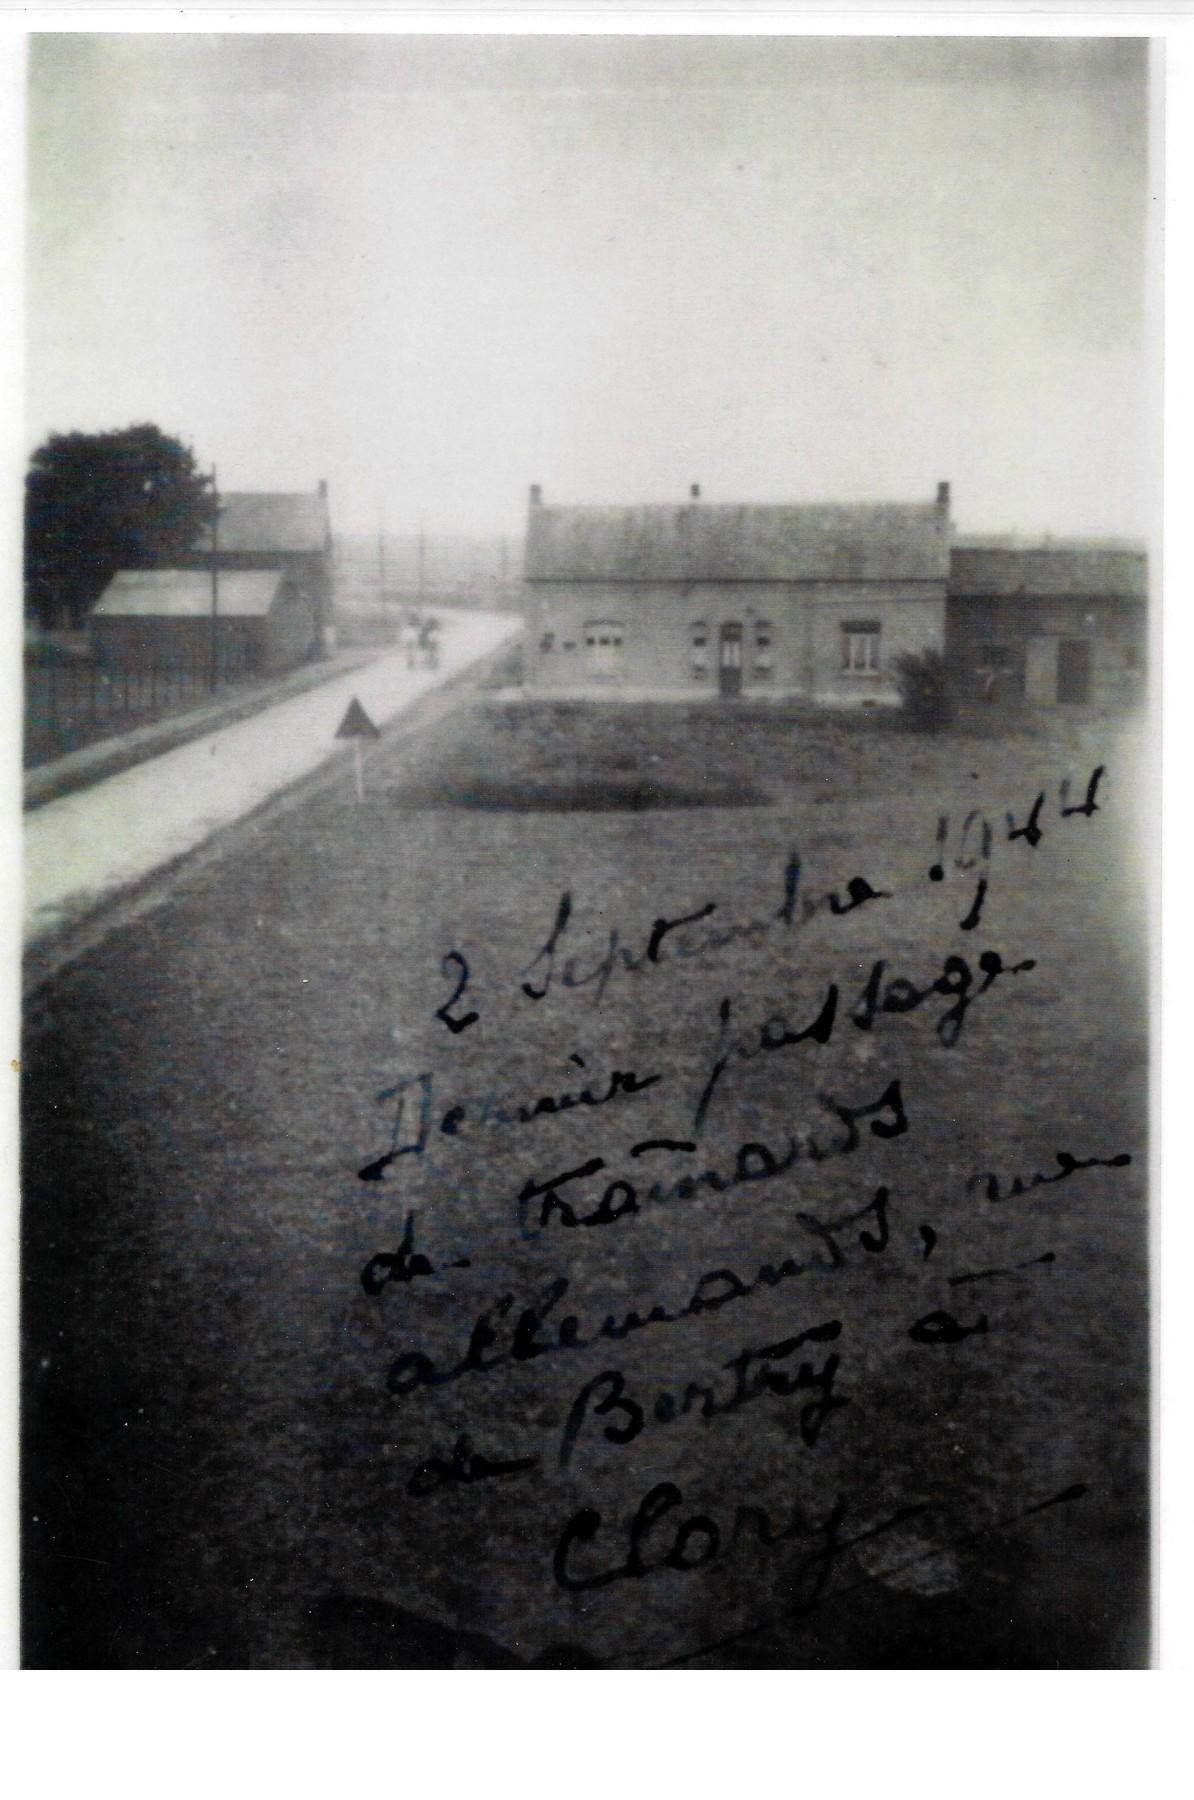 2 Septembre 1944
Dernier passage
de traînards
allemands, rue
de Bertry à
Clary